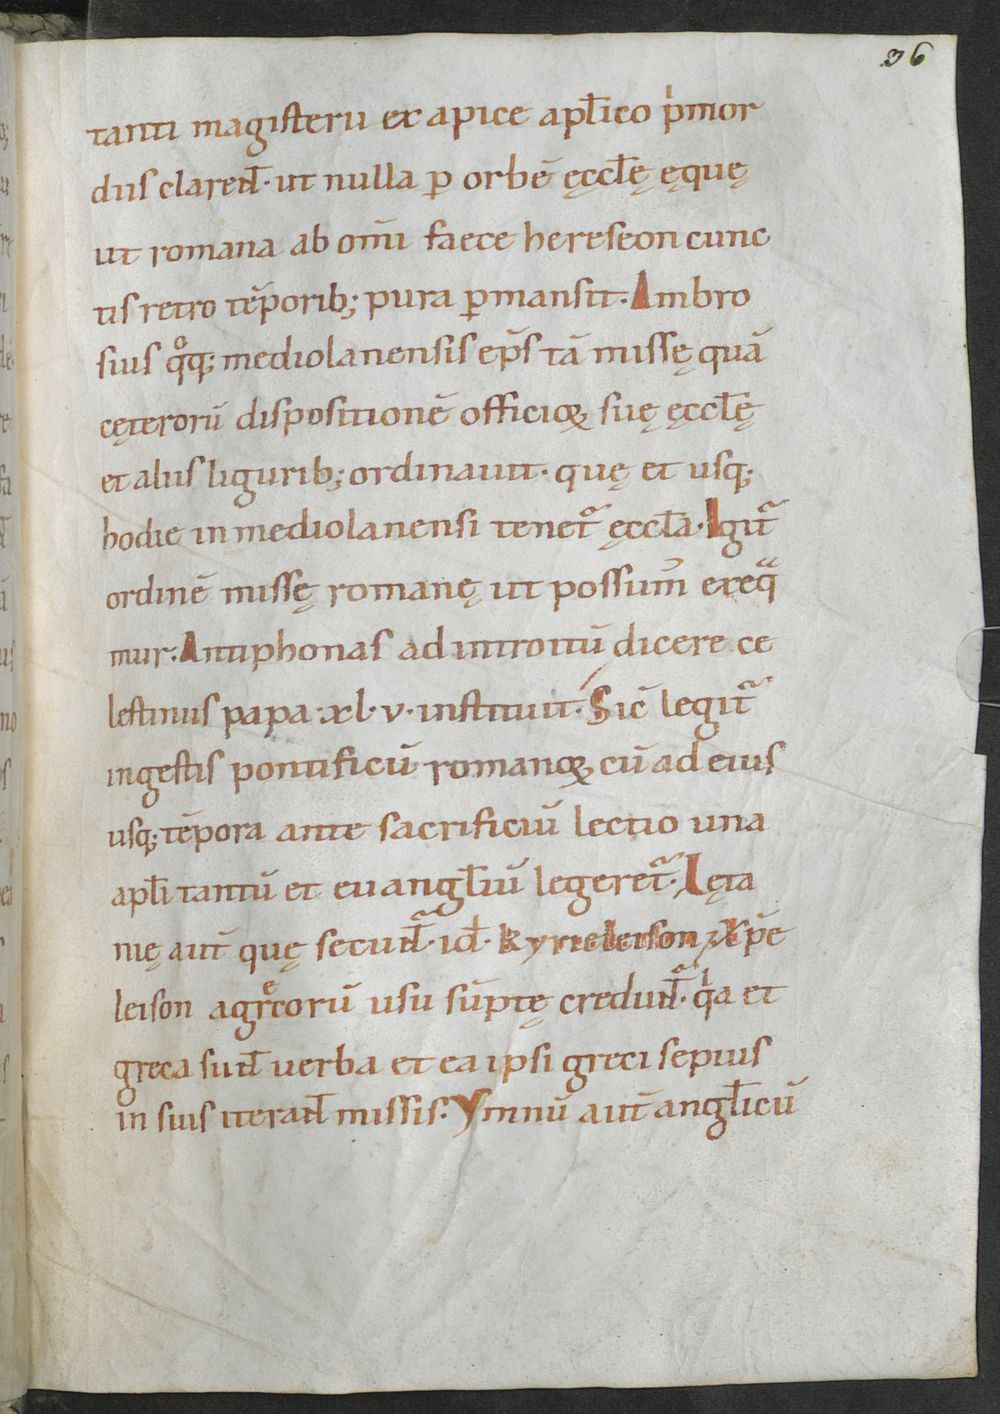 36
tanti magisterii ex apice apl̄ico p̍mor
diis clarent̄. ut nulla ꝑ orbē ęccl̄ę ęquę
ut romana ab om̄i faece hereseon cunc
tis retro tēporib; pura ꝑmansit. Ambro
sius qͦq; mediolanensis ep̄s tā missę quā
cęterorū dispositionē officioꝝ suę ęccl̄ę
et aliis ligurib; ordinauit. quę et usq;
hodie in mediolanensi tenet᷑ ęccl̄a. Igit᷑
ordinē missę romanę ut possum᷒ exeqᷓ
mur. Antiphonas ad introitū dicere ce
lestinus papa .xl.v. instituit. Sic̄ legit᷑
in gestis pontificū romanoꝝ cū ad eius
usq; tēpora ante sacrificiū lectio una
apl̄i tantū et euangl̄iū legeret᷑. Lęta
nię aut̄ quę secunt᷑. id̄. kyrieleison, χ̄pē
leison a grͤcorū usu sūptę credunt᷑. qͥa et
greca sunt̄ uerba et ea ipsi greci sepius
in suis iterant̄ missis. Ymnū aut̄ angl̄icū